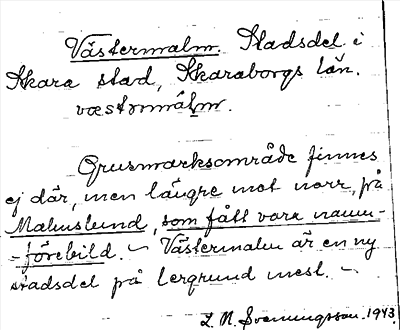 Västermalm. Stadsdel i
Skara stad, Skaraborgs län.
væstərmálm.
Grusmarksområde finnes
ej där, men längre mot norr, på
Malmslund, som fått vara namn-
-förebild. - Västermalm är en ny
stadsdel på lergrund mest. -
L. M. Svenungsson. 1943.